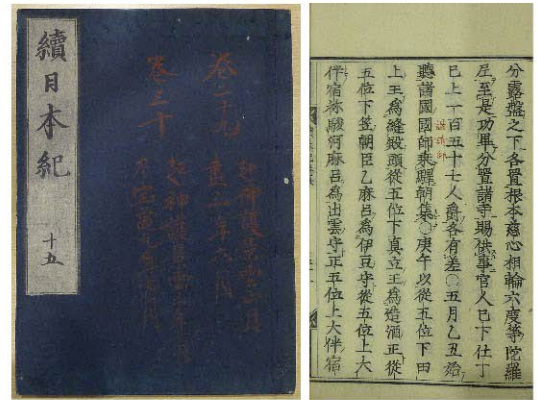 續日本紀
十五
卷二十九
卷三十
分露盤之下各置根本慈心相輪六度等陀羅
尼至是功畢分置諸寺賜供事官人已下仕丁
已上一百五十七人爵各有差○五月乙丑始
聽諸國國師乘驛朝集○庚午以從五位下田
上王爲縫殿頭從五位下真立王爲造酒正從
五位下笠朝臣乙麻呂爲伊豆守從五位上大
伴宿祢駿河麻呂爲出雲守正五位上大伴宿